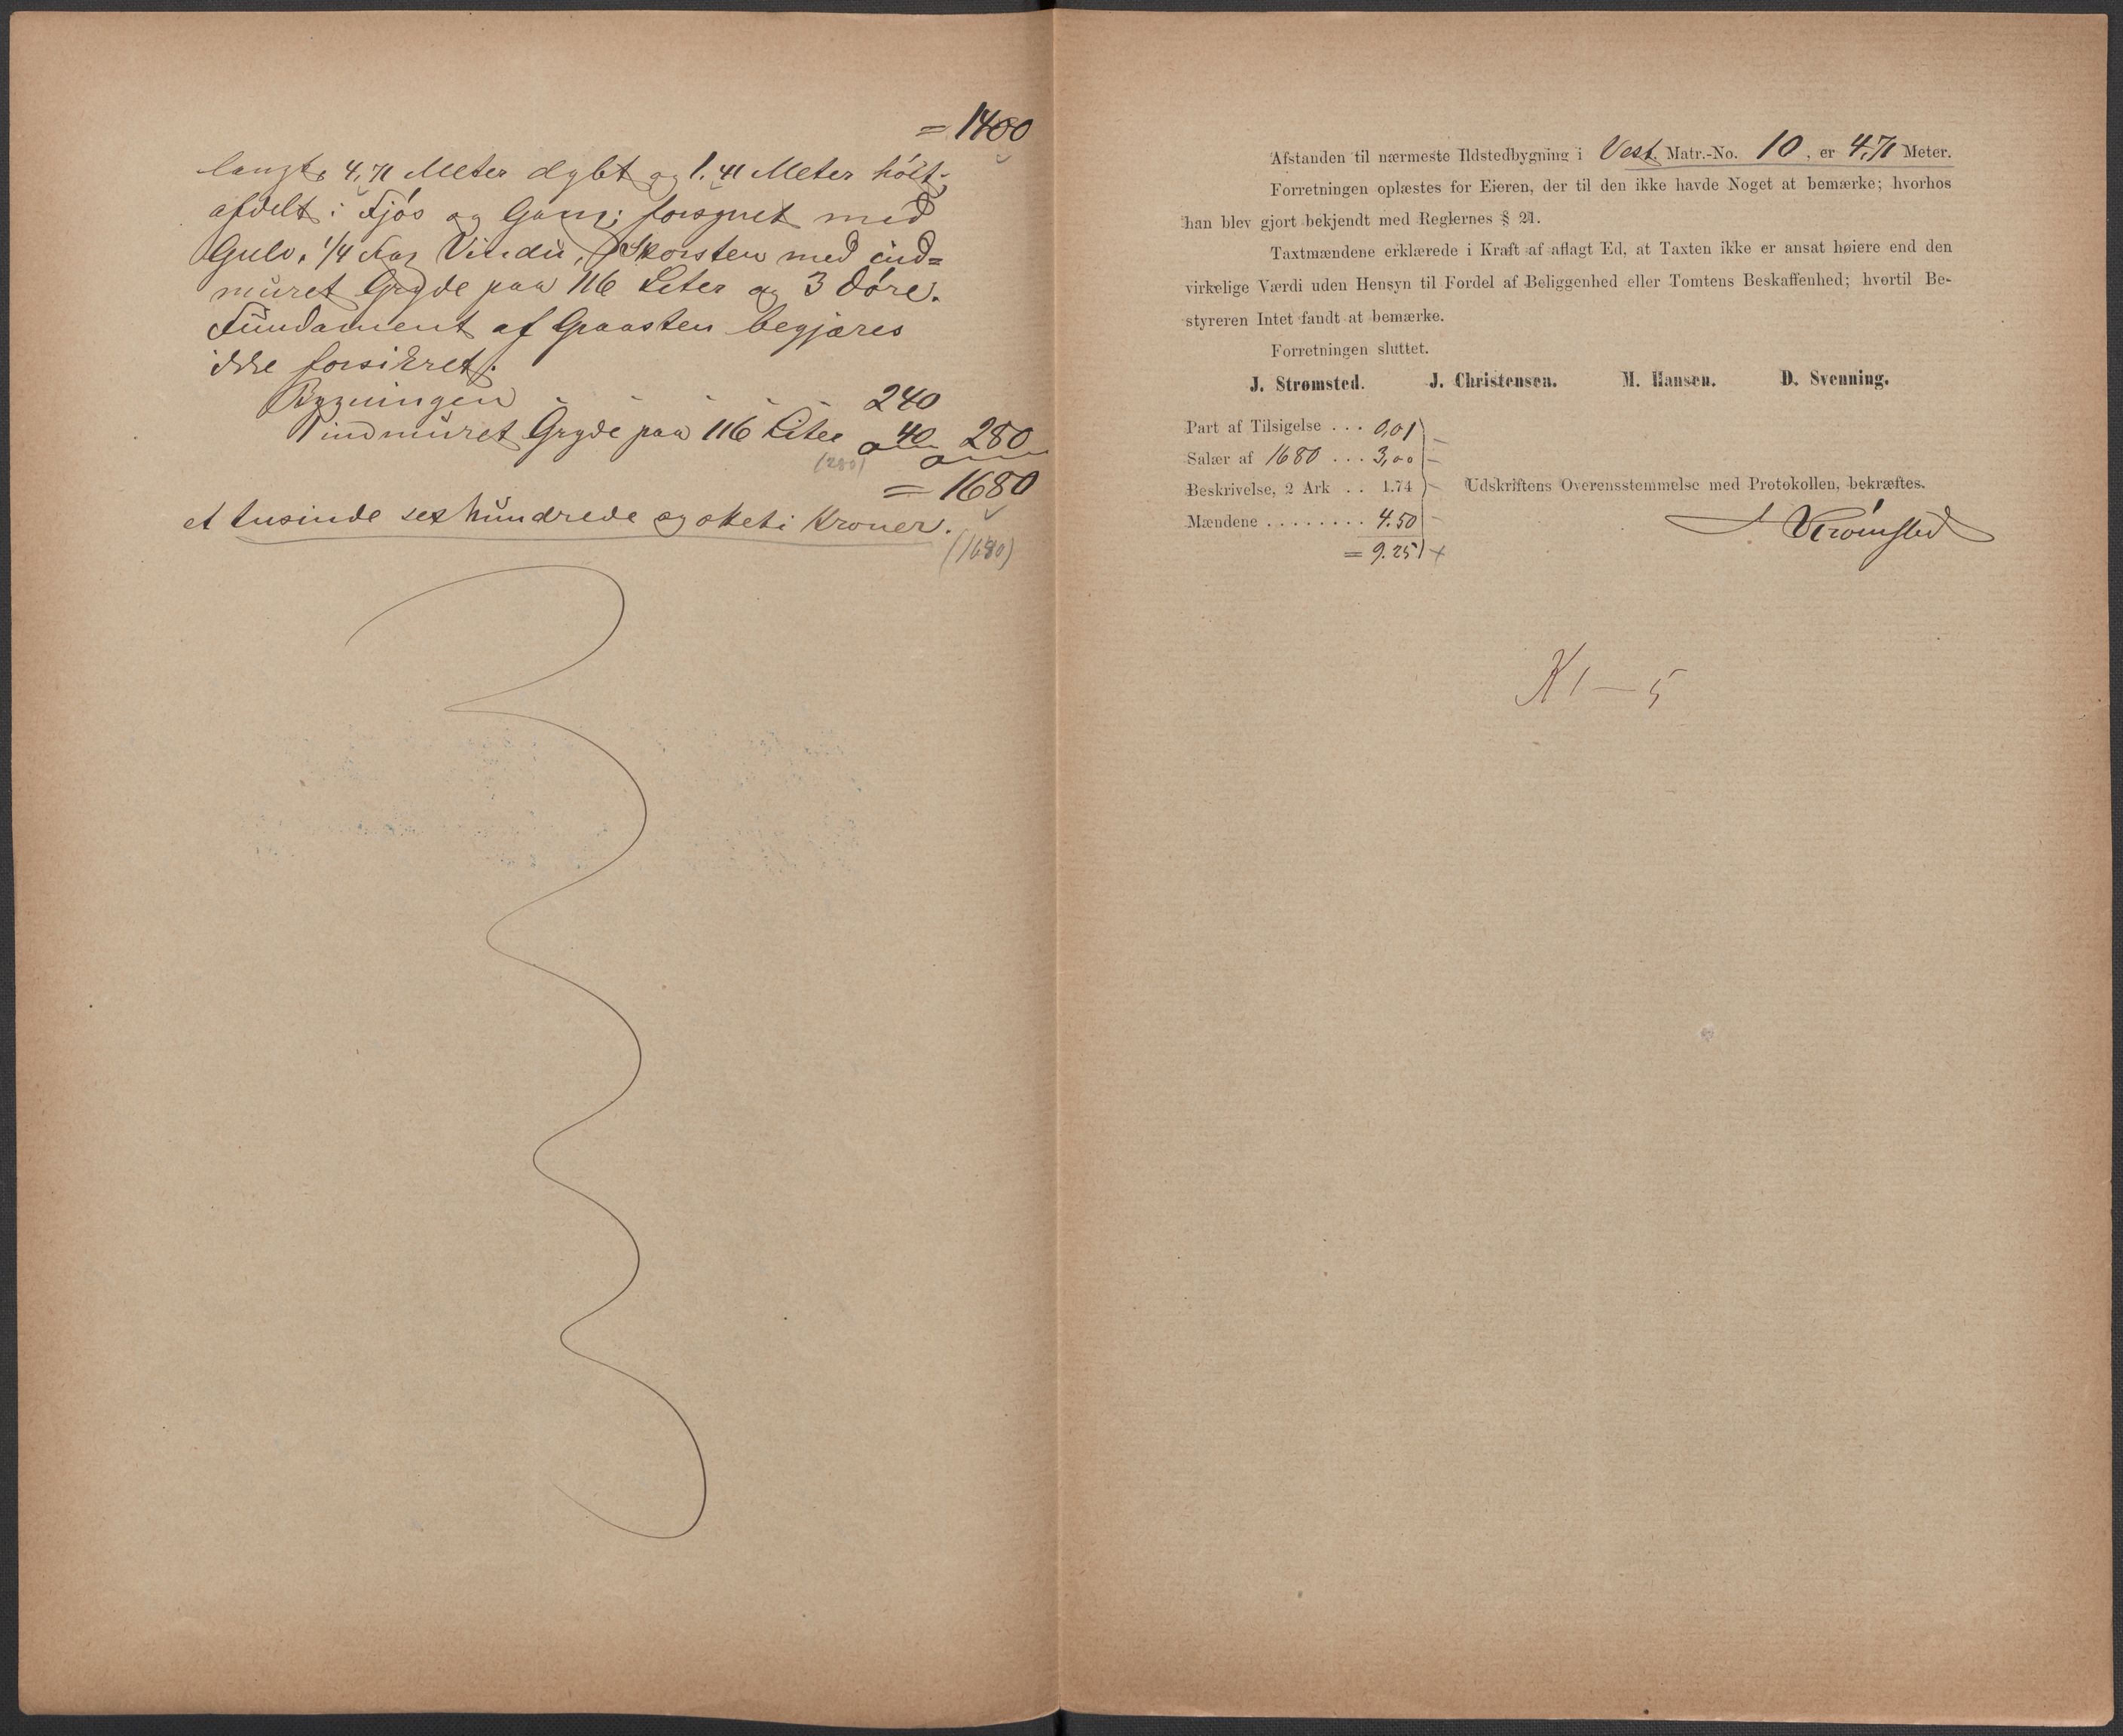 = 1400
langt, 4,71 Meter dybt og 1.41 Meter höit;
afdelt i Fjós og Gang; forsynet med
Gulv, 1/4 Fag Vindu, Skorsten med ind=
muret Gryde paa 116 Liter og 3 Döre.
Fundament af Graasten begjæres
ikke forsikret.
Bygningen - - - - - 240
1 indmuret Gryde paa 116 Liter 40 280
(280)
= 1680
et tusinde sex hundrede og otteti Kroner.
(1680)
Afstanden til nærmeste Ildstedbygning i Vest. Matr.-No. 10, er 4,71 Meter.
Forretningen oplæstes for Eieren, der til den ikke havde Noget at bemærke; hvorhos
han blev gjort bekjendt med Reglernes § 21.
Taxtmændene erklærede i Kraft af aflagt Ed, at Taxten ikke er ansat høiere end den
virkelige Værdi uden Hensyn til Fordel af Beliggenhed eller Tomtens Beskaffenhed; hvortil Be-
styreren Intet fandt at bemærke.
Forretningen sluttet.
J. Strømsted. J. Christensen. M. Hansen. D. Svenning.
Part af Tilsigelse . . . 0,01
Salær af 1680 . . . 3,00
Beskrivelse, 2 Ark . . 1.74
Udskriftens Overensstemmelse med Protokollen, bekræftes.
Mændene . . . . . . . . 4.50
J Strömsted
= 9.25
Kl — 5